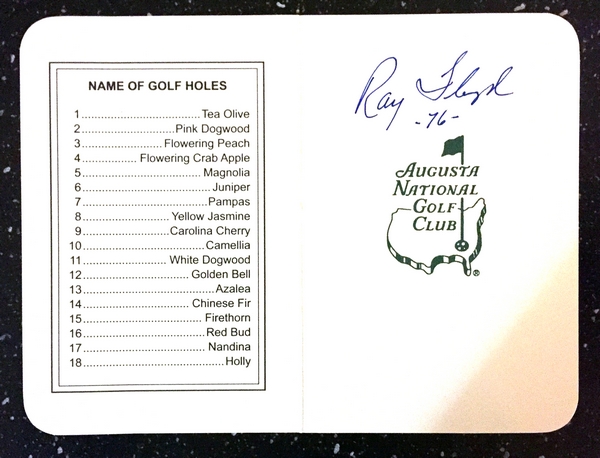 NAME OF GOLF HOLES
1..............................Tea Olive
2......................Pink Dogwood
3....................Flowering Peach
4.............. Flowering Crab Apple
5..............................Magnolia
6................................Juniper
7...............................Pampas
8......................Yellow Jasmine
9.....................Carolina Cherry
10..............................Camellia
11.....................White Dogwood
12...........................Golden Bell
13................................Azalea
14...........................Chinese Fir
15..............................Firethorn
16..............................Red Bud
17...............................Nandina
18....................................Holly
Ray Floyd
-76-
AUGUSTA
NATIONAL
GOLF
CLUB
®